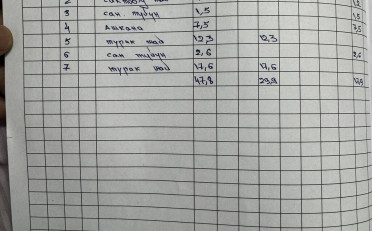 2
3 сан. тузун 1,5 1,5
4 Ашкана 7,5 7,5
5 турак жай 12,3 12,3
6 сан тузун 2,6 2,6
7 турак жай 17,6 17,6
47,8 29,9 17,9